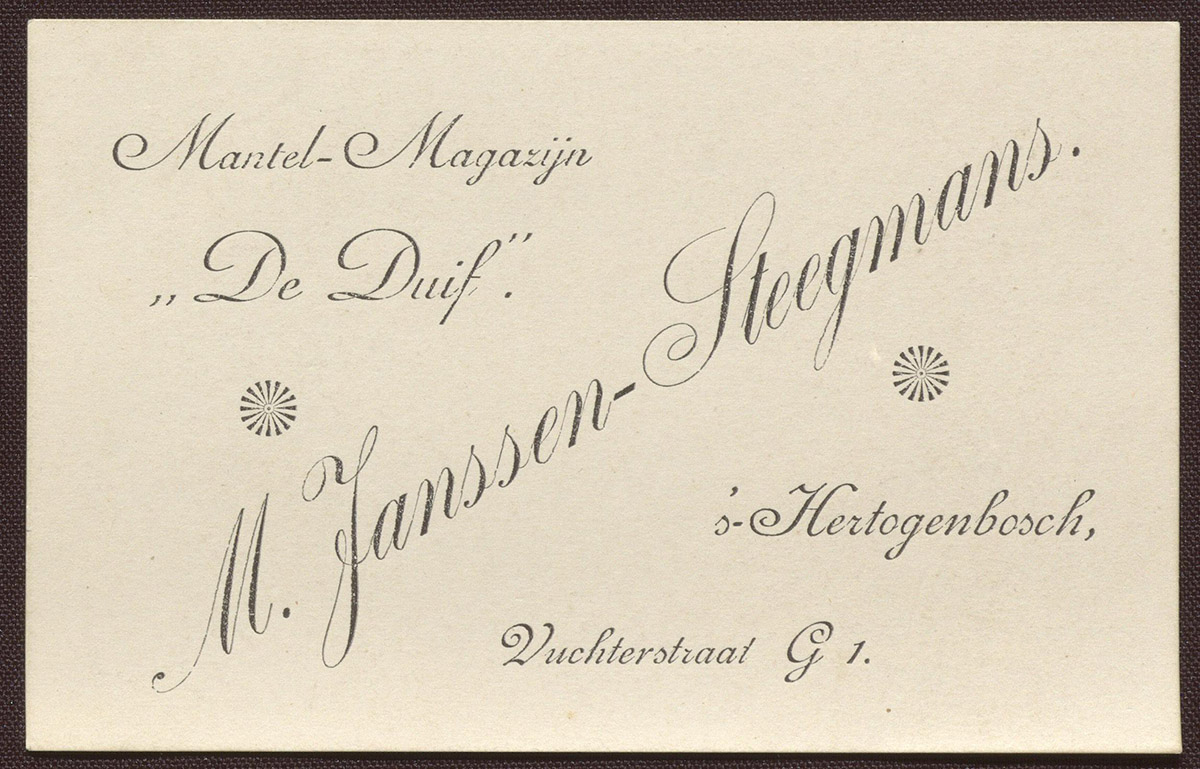 Mantel-Magazijn
„De Duif".
M. Janssen-Steegmans.
's-Hertogenbosch,
Vuchterstraat G 1.